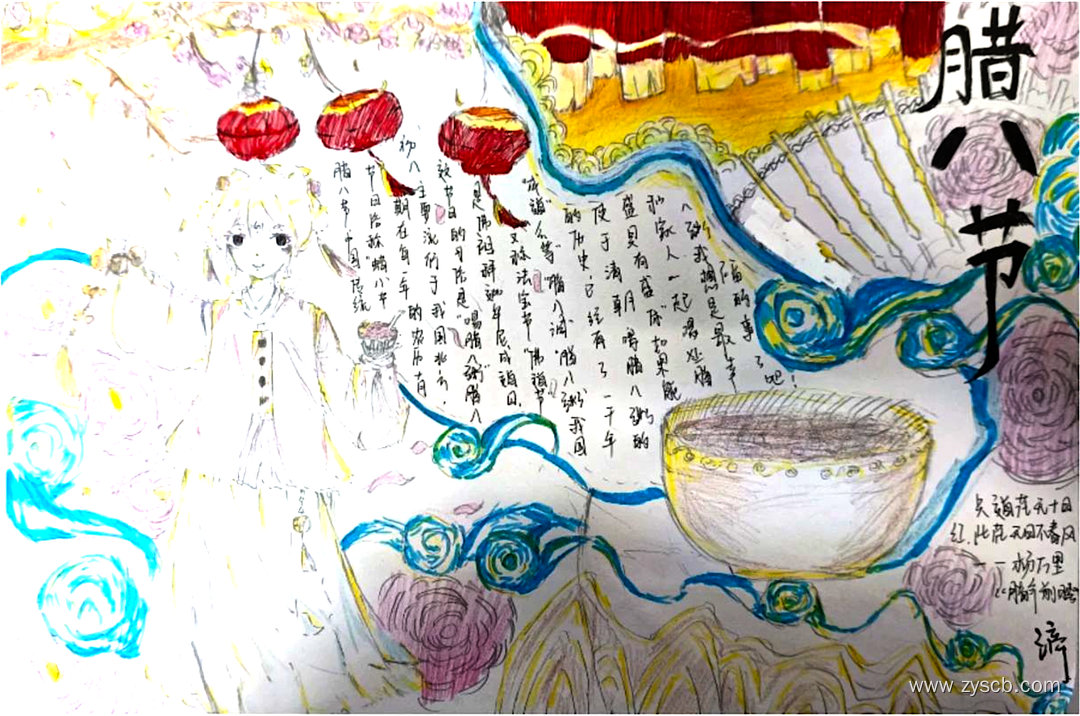 腊八节
腊八节中国传统
节日俗称“蜡八节
期在每年的农历
初八主要流行于我国北方,
节日的习俗是“喝腊八粥”腊八
是佛祖释迦牟尼成道日,
又称法宝节“佛道节
“成道会等”腊八粥我国
的历史,已经有了一千年
于清朝 喝腊八粥的
盛 如果能
和家人一起喝 腊
八粥我想是最幸
福的事了吧!
只道花无十日
红,此花无日不春风
——杨万里
《腊前
www.zyscb.com